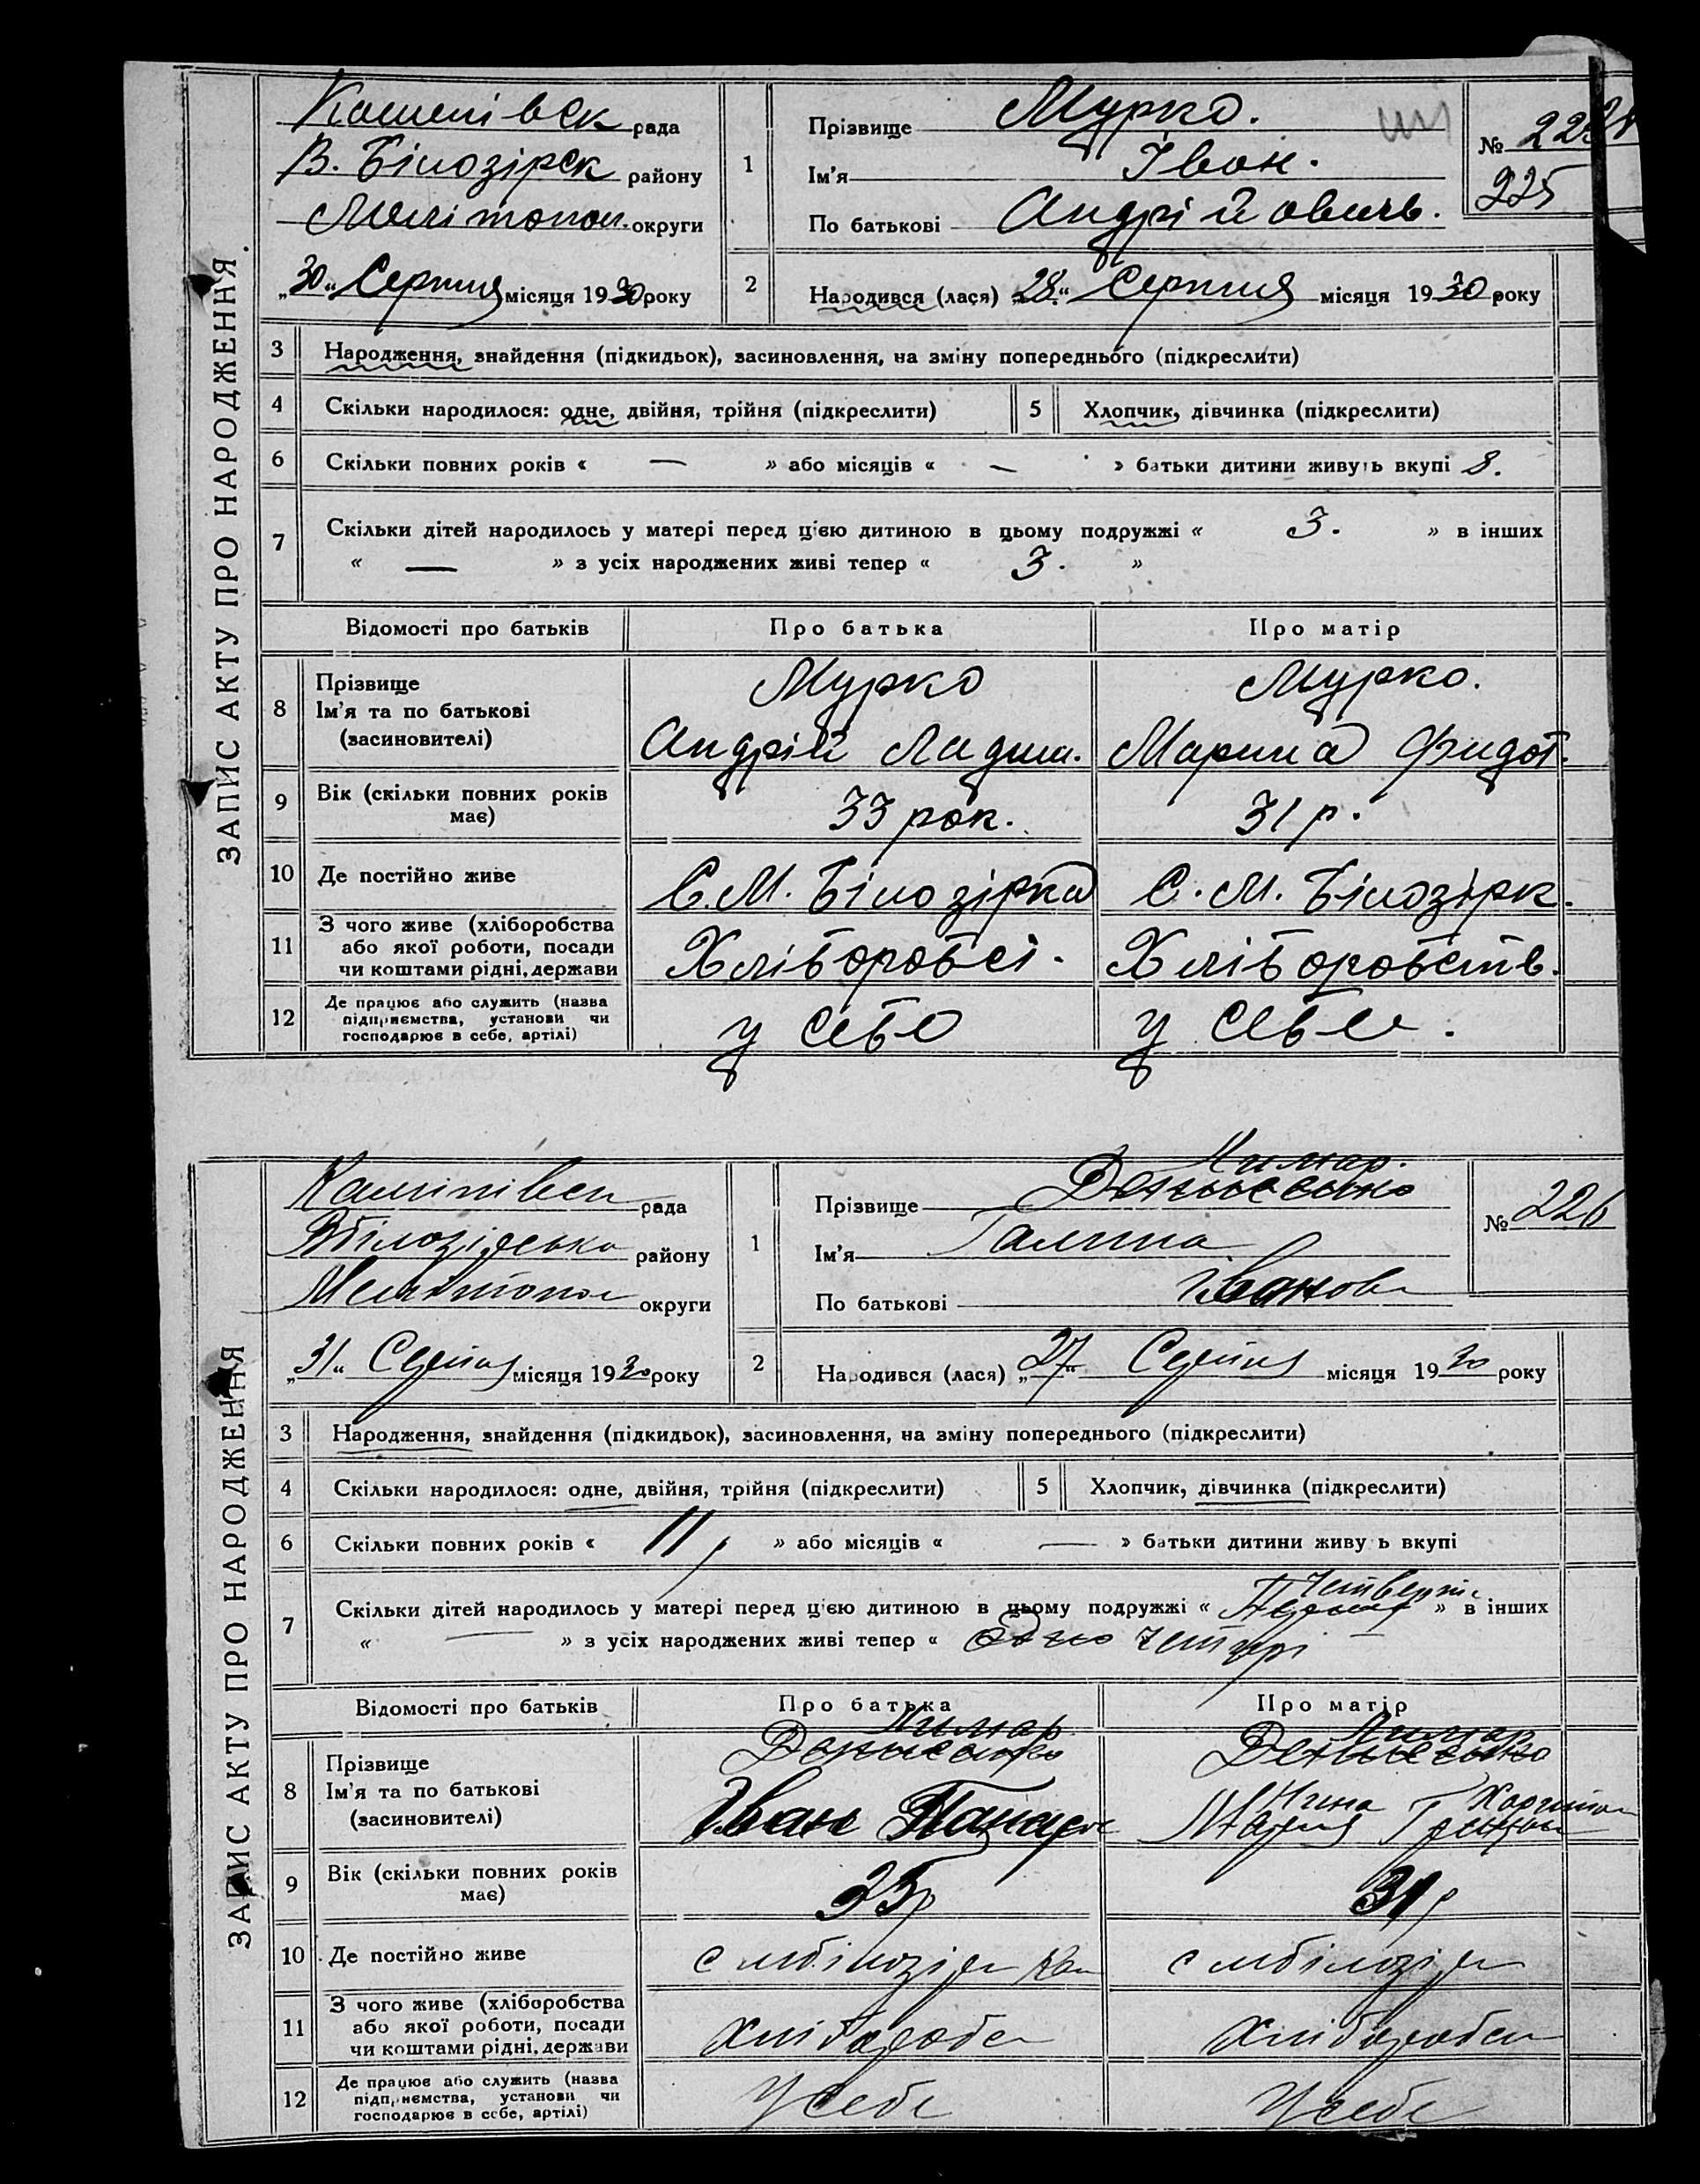 ЗАПИС АКТУ ПРО НАРОДЖЕННЯ.
рада
В. Білозірск району
Мелітопол. округи
„30“ Серпня місяця 1930 року
1
Прізвище Мурко.
Ім'я Іван.
По батькові Андрійович.
№ 225
2
Народився (лася) „28“ Серпня місяця 1930 року
3 Народження, знайдення (підкидьок), засиновлення, на зміну попереднього (підкреслити)
4 Скільки народилося: одне, двійня, трійня (підкреслити) 5 Хлопчик, дівчинка (підкреслити)
6 Скільки повних років « — » або місяців « — » батьки дитини живуть вкупі 8.
7 Скільки дітей народилось у матері перед цією дитиною в цьому подружжі « 3. » в інших
« — » з усіх народжених живі тепер « 3. »
Відомості про батьків Про батька Про матір
8 Прізвище Ім'я та по батькові (засиновителі)
Мурко Мурко.
Андрій Марина Федот.
9 Вік (скільки повних років має) 33 рок. 31 р.
10 Де постійно живе С. М. Білозірка С. М. Білозірк.
11 З чого живе (хліборобства або якої роботи, посади чи коштами рідні, держави Хлібороб Хліборобств.
12 Де працює або служить (назва підприємства, установи чи господарює в себе, артілі) у себе у себе.
ЗАПИС АКТУ ПРО НАРОДЖЕННЯ
рада
району
Мелітопол округи
„31“ Серпня місяця 1930 року
1
Прізвище Лимар.
Ім'я Галина
По батькові Іванов
№ 226
2
Народився (лася) „27“ Серпня місяця 1930 року
3 Народження, знайдення (підкидьок), засиновлення, на зміну попереднього (підкреслити)
4 Скільки народилося: одне, двійня, трійня (підкреслити) 5 Хлопчик, дівчинка (підкреслити)
6 Скільки повних років « 11 р » або місяців « — » батьки дитини живуть вкупі
7 Скільки дітей народилось у матері перед цією дитиною в цьому подружжі « Четверт » в інших
« — » з усіх народжених живі тепер « одно чотирі
Відомості про батьків Про батька Про матір
8 Прізвище Ім'я та по батькові (засиновителі)
Лимар Лимар
Іван Харитон
Марія
9 Вік (скільки повних років має) 31 р
10 Де постійно живе с мбілозір с мбілозір
11 З чого живе (хліборобства або якої роботи, посади чи коштами рідні, держави хлібороб хлібороб
12 Де працює або служить (назва підприємства, установи чи господарює в себе, артілі) У себе У себе